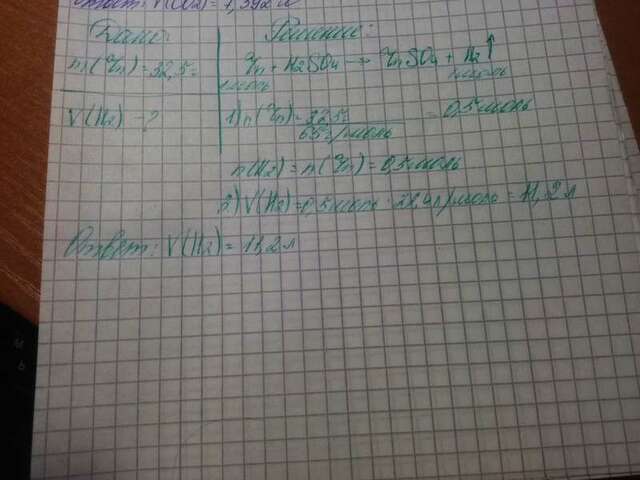 Ответ: V(O2) = 1,392 л
Дано: Решение:
m(Zn) = 32,5г Zn + H2SO4 → ZnSO4 + H2↑
1моль 1моль
V(H2) - ? 1) n(Zn) = 32,5г / 65г/моль = 0,5моль
n(H2) = n(Zn) = 0,5моль
2) V(H2) = 0,5моль · 22,4л/моль = 11,2л
Ответ: V(H2) = 11,2л